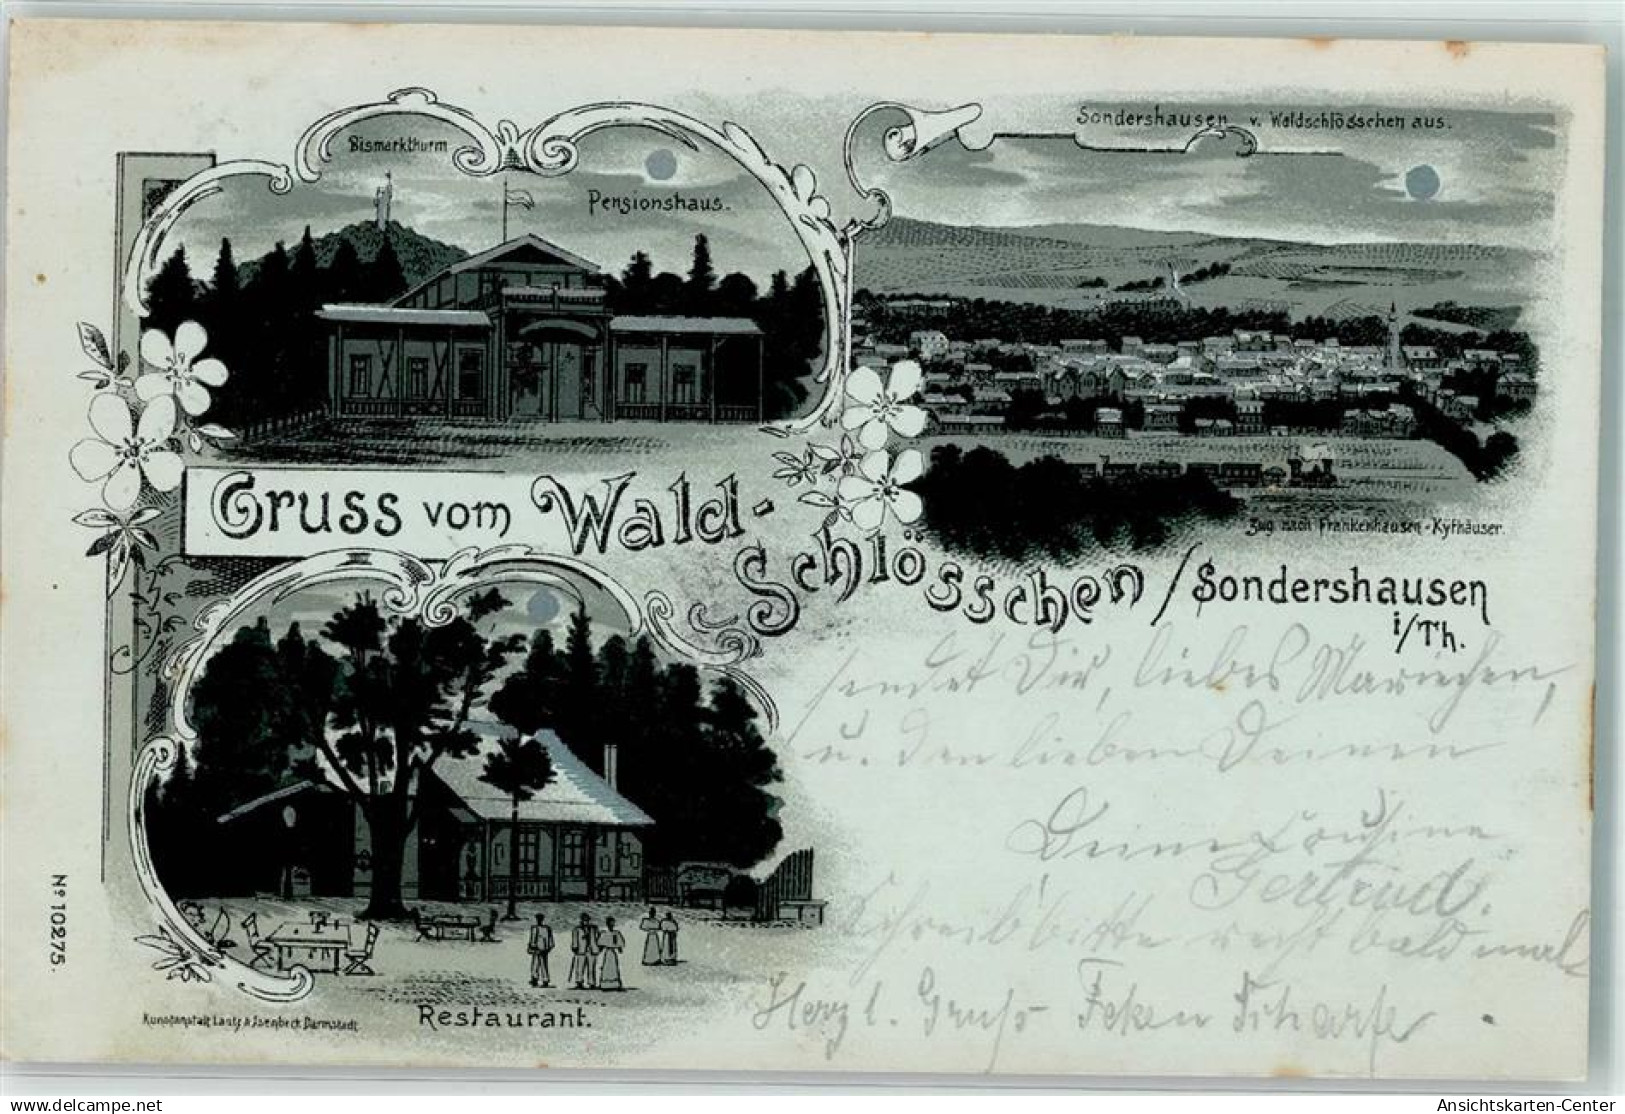 Bismarkthurm
Pensionshaus.
Sondershausen v. Waldschlösschen aus.
Zug nach Frankenhausen-Kyfhäuser.
Gruss vom Wald-
Schlösschen / Sondershausen
i/Th.
sendet Dir, liebes Mariechen,
u. den lieben Deinen
Deine Cousine
Gertrud.
Schreib bitte recht bald mal
Herzl. Gruss
Restaurant.
Kunstanstalt Lautz & Isenbeck Darmstadt
No 10275.
www.delcampe.net
Ansichtskarten-Center